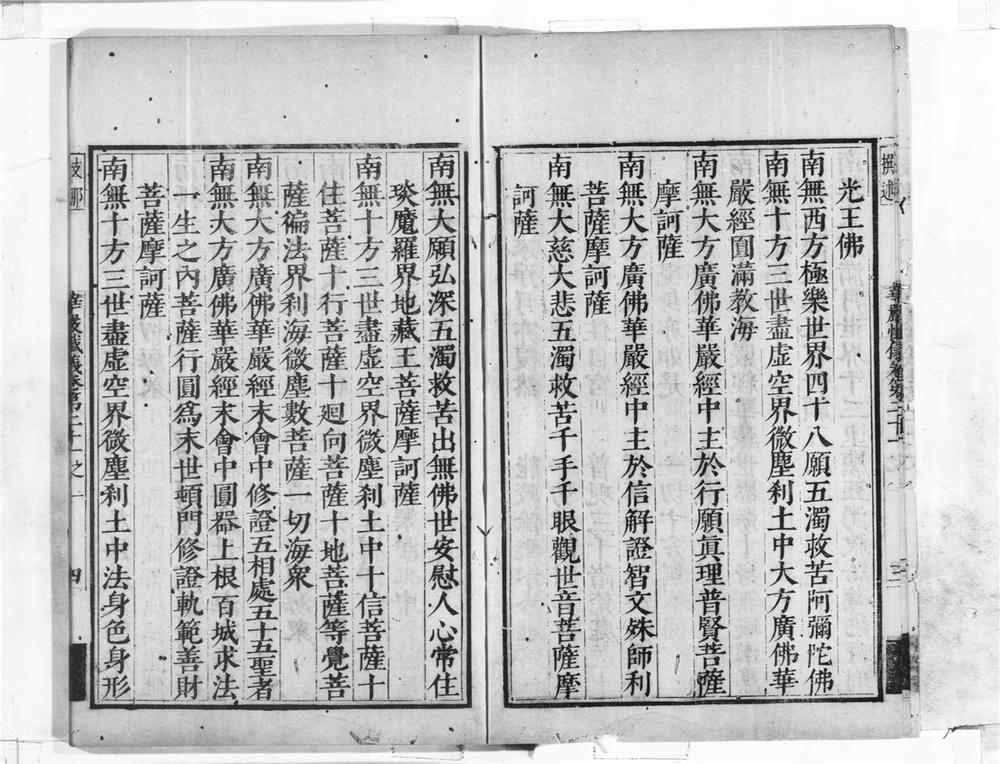 撰述
華嚴懺儀卷第二十一
三
光王佛
南無西方極樂世界四十八願五濁救苦阿彌陀佛
南無十方三世盡虛空界微塵刹土中大方廣佛華
嚴經圓滿教海
南無大方廣佛華嚴經中主於行願眞理普賢菩薩
摩訶薩
南無大方廣佛華嚴經中主於信解證智文殊師利
菩薩摩訶薩
南無大慈大悲五濁救苦千手千眼觀世音菩薩摩
訶薩
南無大願弘深五濁救苦出無佛世安慰人心常住
琰魔羅界地藏王菩薩摩訶薩
南無十方三世盡虛空界微塵刹土中十信菩薩十
住菩薩十行菩薩十廻向菩薩十地菩薩等覺菩
薩徧法界刹海微塵數菩薩一切海衆
南無大方廣佛華嚴經末會中修證五相處五十五聖者
南無大方廣佛華嚴經末會中圓器上根百城求法
一生之內菩薩行圓爲末世頓門修證軌範善財
菩薩摩訶薩
南無十方三世盡虛空界微塵刹土中法身色身形
支那
華嚴懺儀卷第二十一之一
四